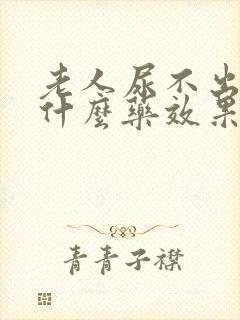 老人尿不出
什麼藥效果
青青子襟